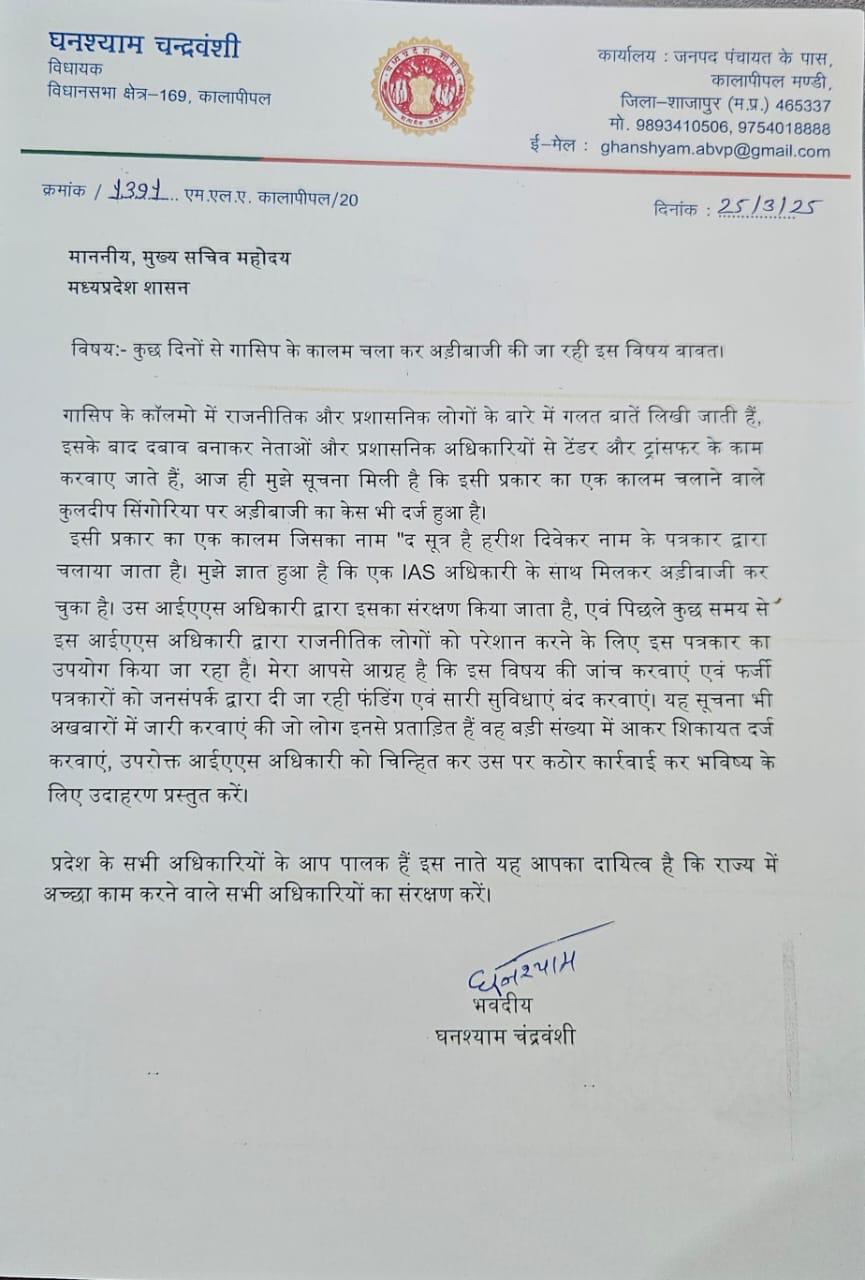 घनश्याम चन्द्रवंशी
विधायक
विधानसभा क्षेत्र–169, कालापीपल
कार्यालय : जनपद पंचायत के पास,
कालापीपल मण्डी,
जिला–शाजापुर (म.प्र.) 465337
मो. 9893410506, 9754018888
ई–मेल : ghanshyam.abvp@gmail.com
क्रमांक / 1391 एम.एल.ए. कालापीपल/20
दिनांक : 25/3/25
माननीय, मुख्य सचिव महोदय
मध्यप्रदेश शासन
विषय:- कुछ दिनों से गासिप के कालम चला कर अड़ीबाजी की जा रही इस विषय बावत।
गासिप के कॉलमो में राजनीतिक और प्रशासनिक लोगों के बारे में गलत बातें लिखी जाती हैं,
इसके बाद दबाव बनाकर नेताओं और प्रशासनिक अधिकारियों से टेंडर और ट्रांसफर के काम
करवाए जाते हैं, आज ही मुझे सूचना मिली है कि इसी प्रकार का एक कालम चलाने वाले
कुलदीप सिंगोरिया पर अड़ीबाजी का केस भी दर्ज हुआ है।
इसी प्रकार का एक कालम जिसका नाम "द सूत्र है हरीश दिवेकर नाम के पत्रकार द्वारा
चलाया जाता है। मुझे ज्ञात हुआ है कि एक IAS अधिकारी के साथ मिलकर अड़ीबाजी कर
चुका है। उस आईएएस अधिकारी द्वारा इसका संरक्षण किया जाता है, एवं पिछले कुछ समय से
इस आईएएस अधिकारी द्वारा राजनीतिक लोगों को परेशान करने के लिए इस पत्रकार का
उपयोग किया जा रहा है। मेरा आपसे आग्रह है कि इस विषय की जांच करवाएं एवं फर्जी
पत्रकारों को जनसंपर्क द्वारा दी जा रही फंडिंग एवं सारी सुविधाएं बंद करवाएं। यह सूचना भी
अखबारों में जारी करवाएं की जो लोग इनसे प्रताड़ित हैं वह बड़ी संख्या में आकर शिकायत दर्ज
करवाएं, उपरोक्त आईएएस अधिकारी को चिन्हित कर उस पर कठोर कार्रवाई कर भविष्य के
लिए उदाहरण प्रस्तुत करें।
प्रदेश के सभी अधिकारियों के आप पालक हैं इस नाते यह आपका दायित्व है कि राज्य में
अच्छा काम करने वाले सभी अधिकारियों का संरक्षण करें।
घनश्याम
भवदीय
घनश्याम चंद्रवंशी